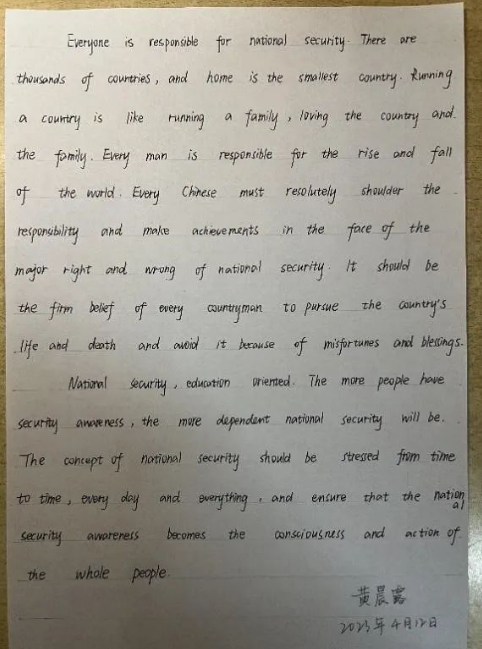 Everyone is responsible for national security. There are
thousands of countries, and home is the smallest country. Running
a country is like running a family, loving the country and
the family. Every man is responsible for the rise and fall
of the world. Every Chinese must resolutely shoulder the
responsibility and make achievements in the face of the
major right and wrong of national security. It should be
the firm belief of every countryman to pursue the country's
life and death and avoid it because of misfortunes and blessings.
National security, education oriented. The more people have
security awareness, the more dependent national security will be.
The concept of national security should be stressed from time
to time, every day and everything, and ensure that the national
security awareness becomes the consciousness and action of
the whole people.
黄晨露
2023年4月12日